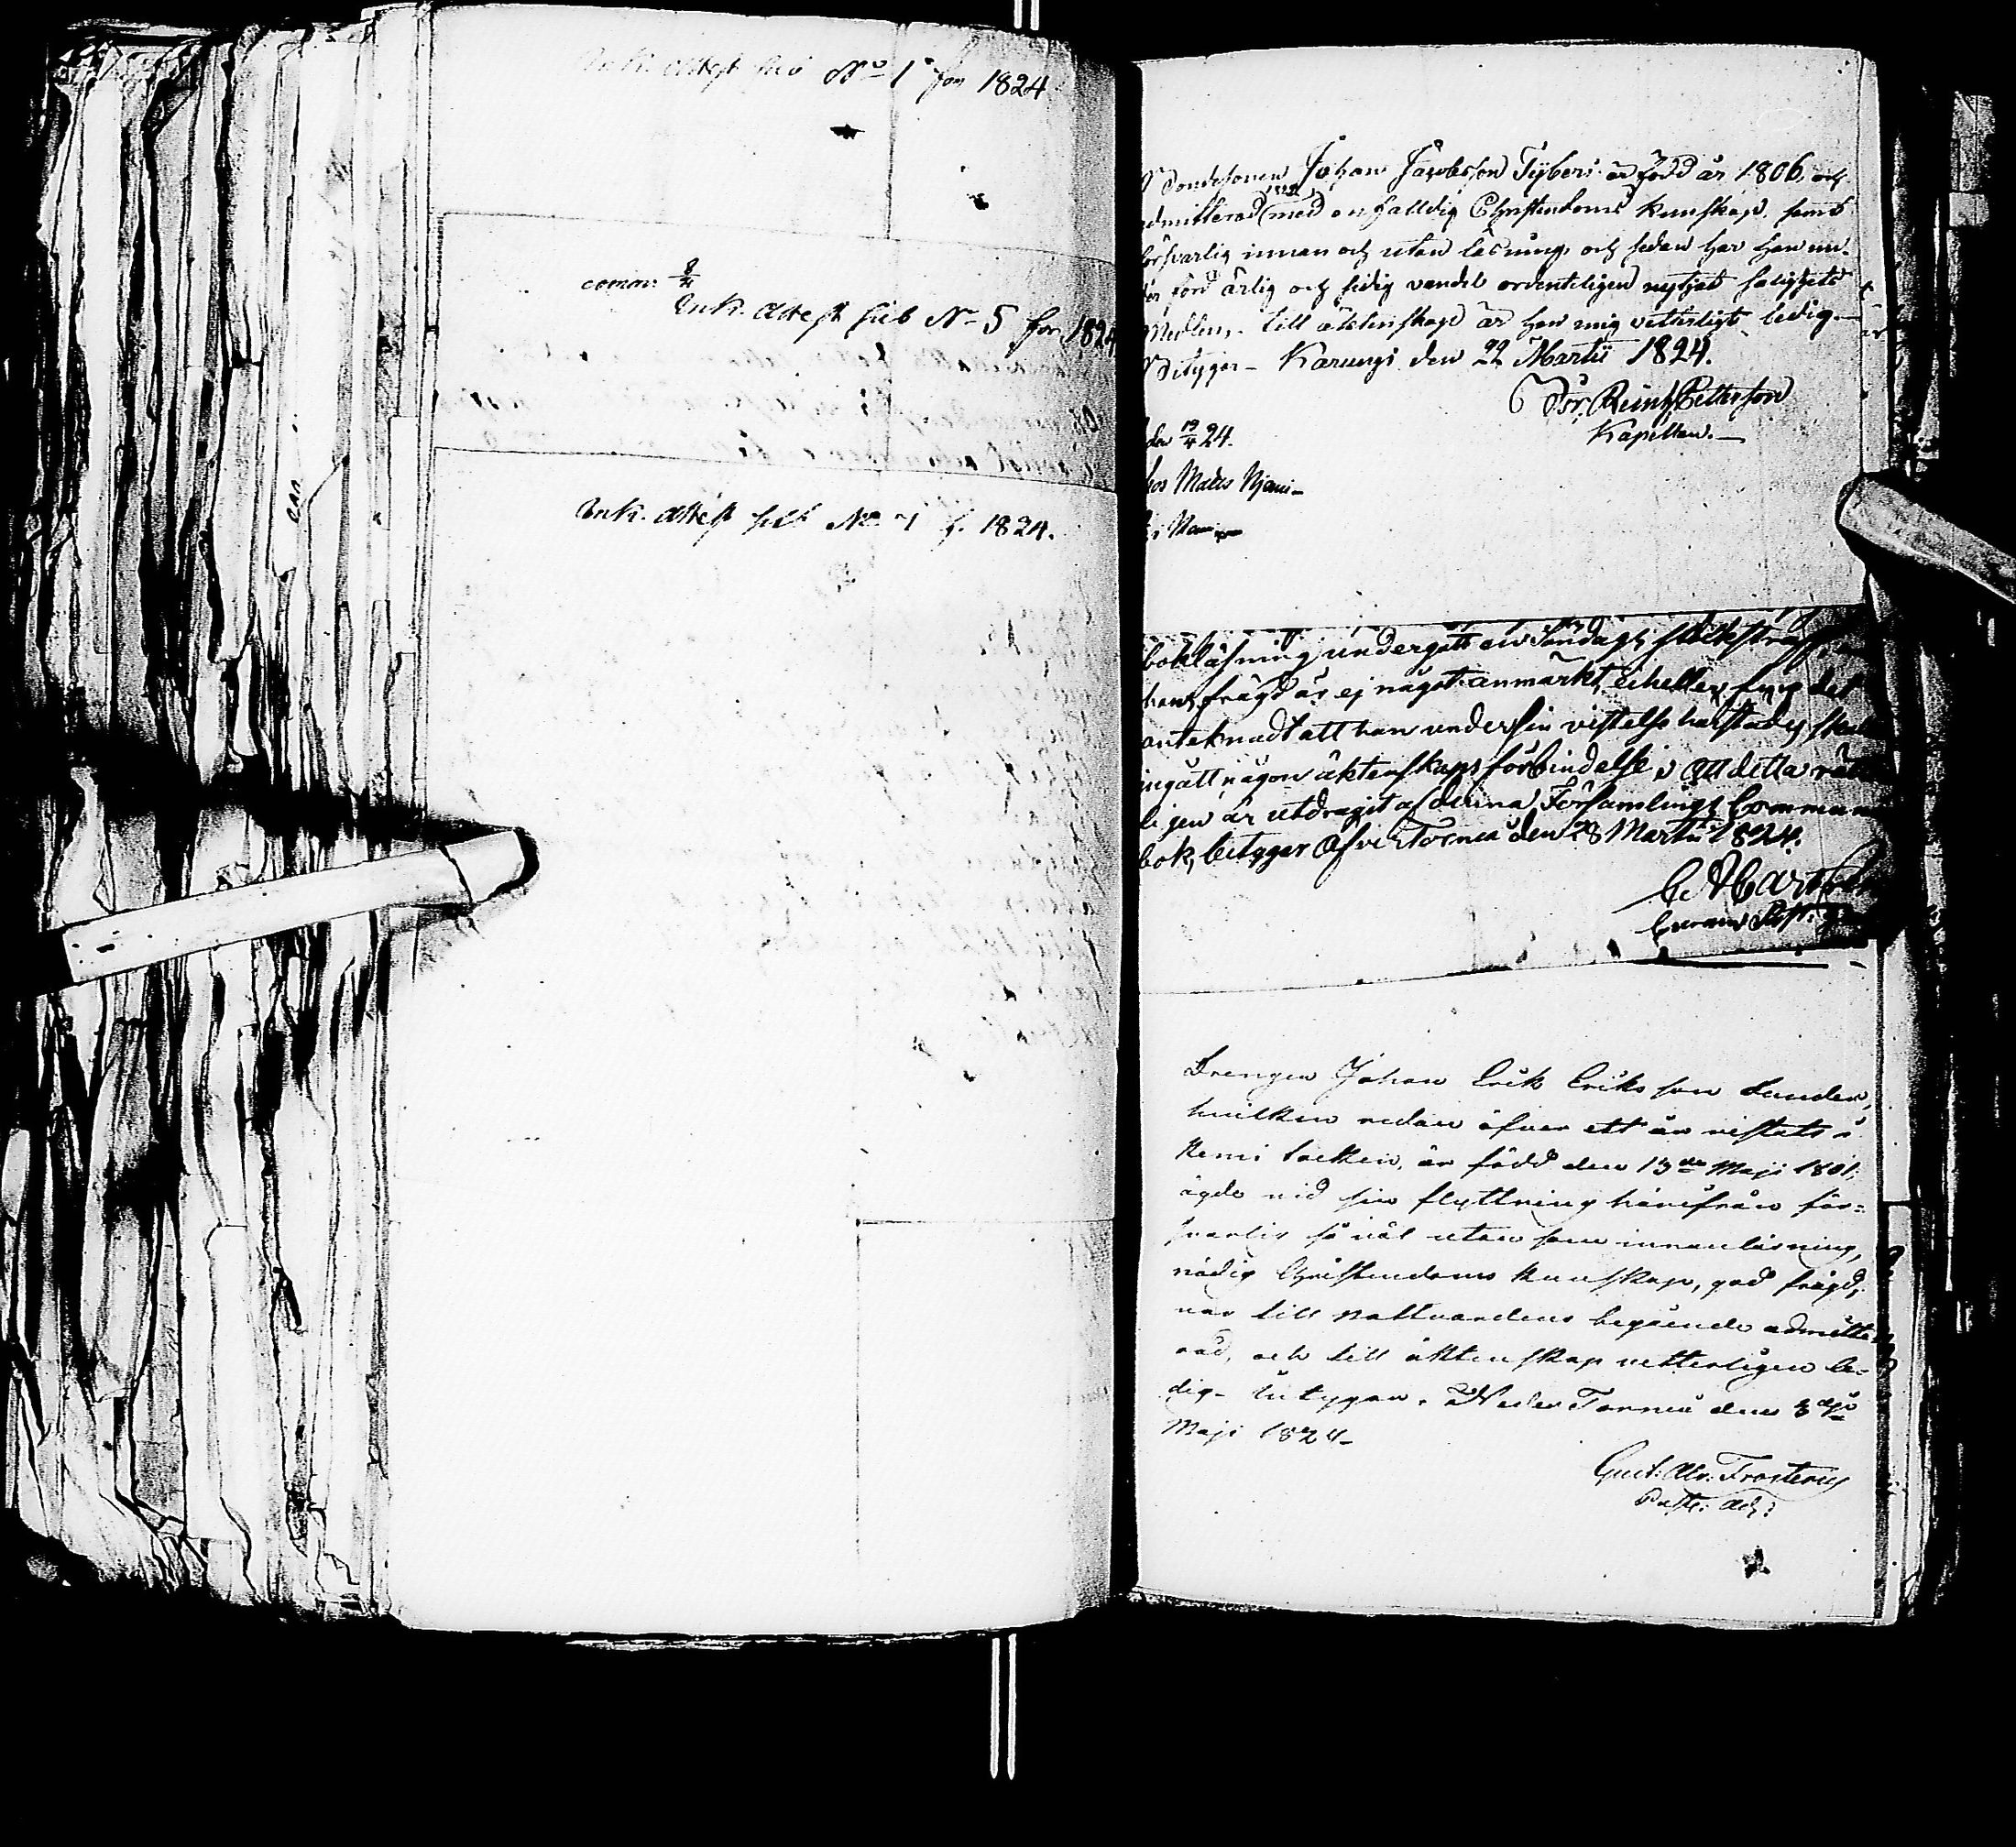 Ink. attest sub No 1 för 1824
comm: 8/4
Ink. Attest sub No 5 för 1824
Ink. attest sub No 7 f. 1824.
Bondesonen Johan Jacobsson Tyberi är född år 1806, och
admitterad med enfalldig Christendoms kunskap, samt
försvarlig innan och utan läsning, och sedan har han un-
der förd ärlig och sedig vandel ordenteligen nytjat salighets
Medlen, till äktenskap är han mig vetterligt ledig.
Betygar Karungi den 22 Martii 1824.
Joh. Reinh. Petterson
Kapellan.
den 19/4 24.
hos Mats
bokläsning undergått en Söndags stockstraff,
hans frägd är ej något anmärkt, eiheller finnes det
anteknadt att han under sin vistelse härstädes skall
ingått någon äktenskaps förbindelse; att detta rätte
ligen är utdragit af denna Församlings Communion
bok, betygar Öfver Torneå den 28 Martii 1824.
Drengen Johan Erik Eriksson Sunden,
hvilken redan öfver ett år vistats i
Kemi socken, är född den 13de Maji 1801;
ägde vid sin flyttning härifrån för-
svarlig så väl utan som innanläsning,
nödig Christendoms kunskap, god frägd,
var till nattvardens begående admitte
rad, och till äktenskap vetterligen le-
dig - betygar. Neder Torneå den 3dje
Maji 1824-
Gust. Adr. Frosterus
Past: Adj: